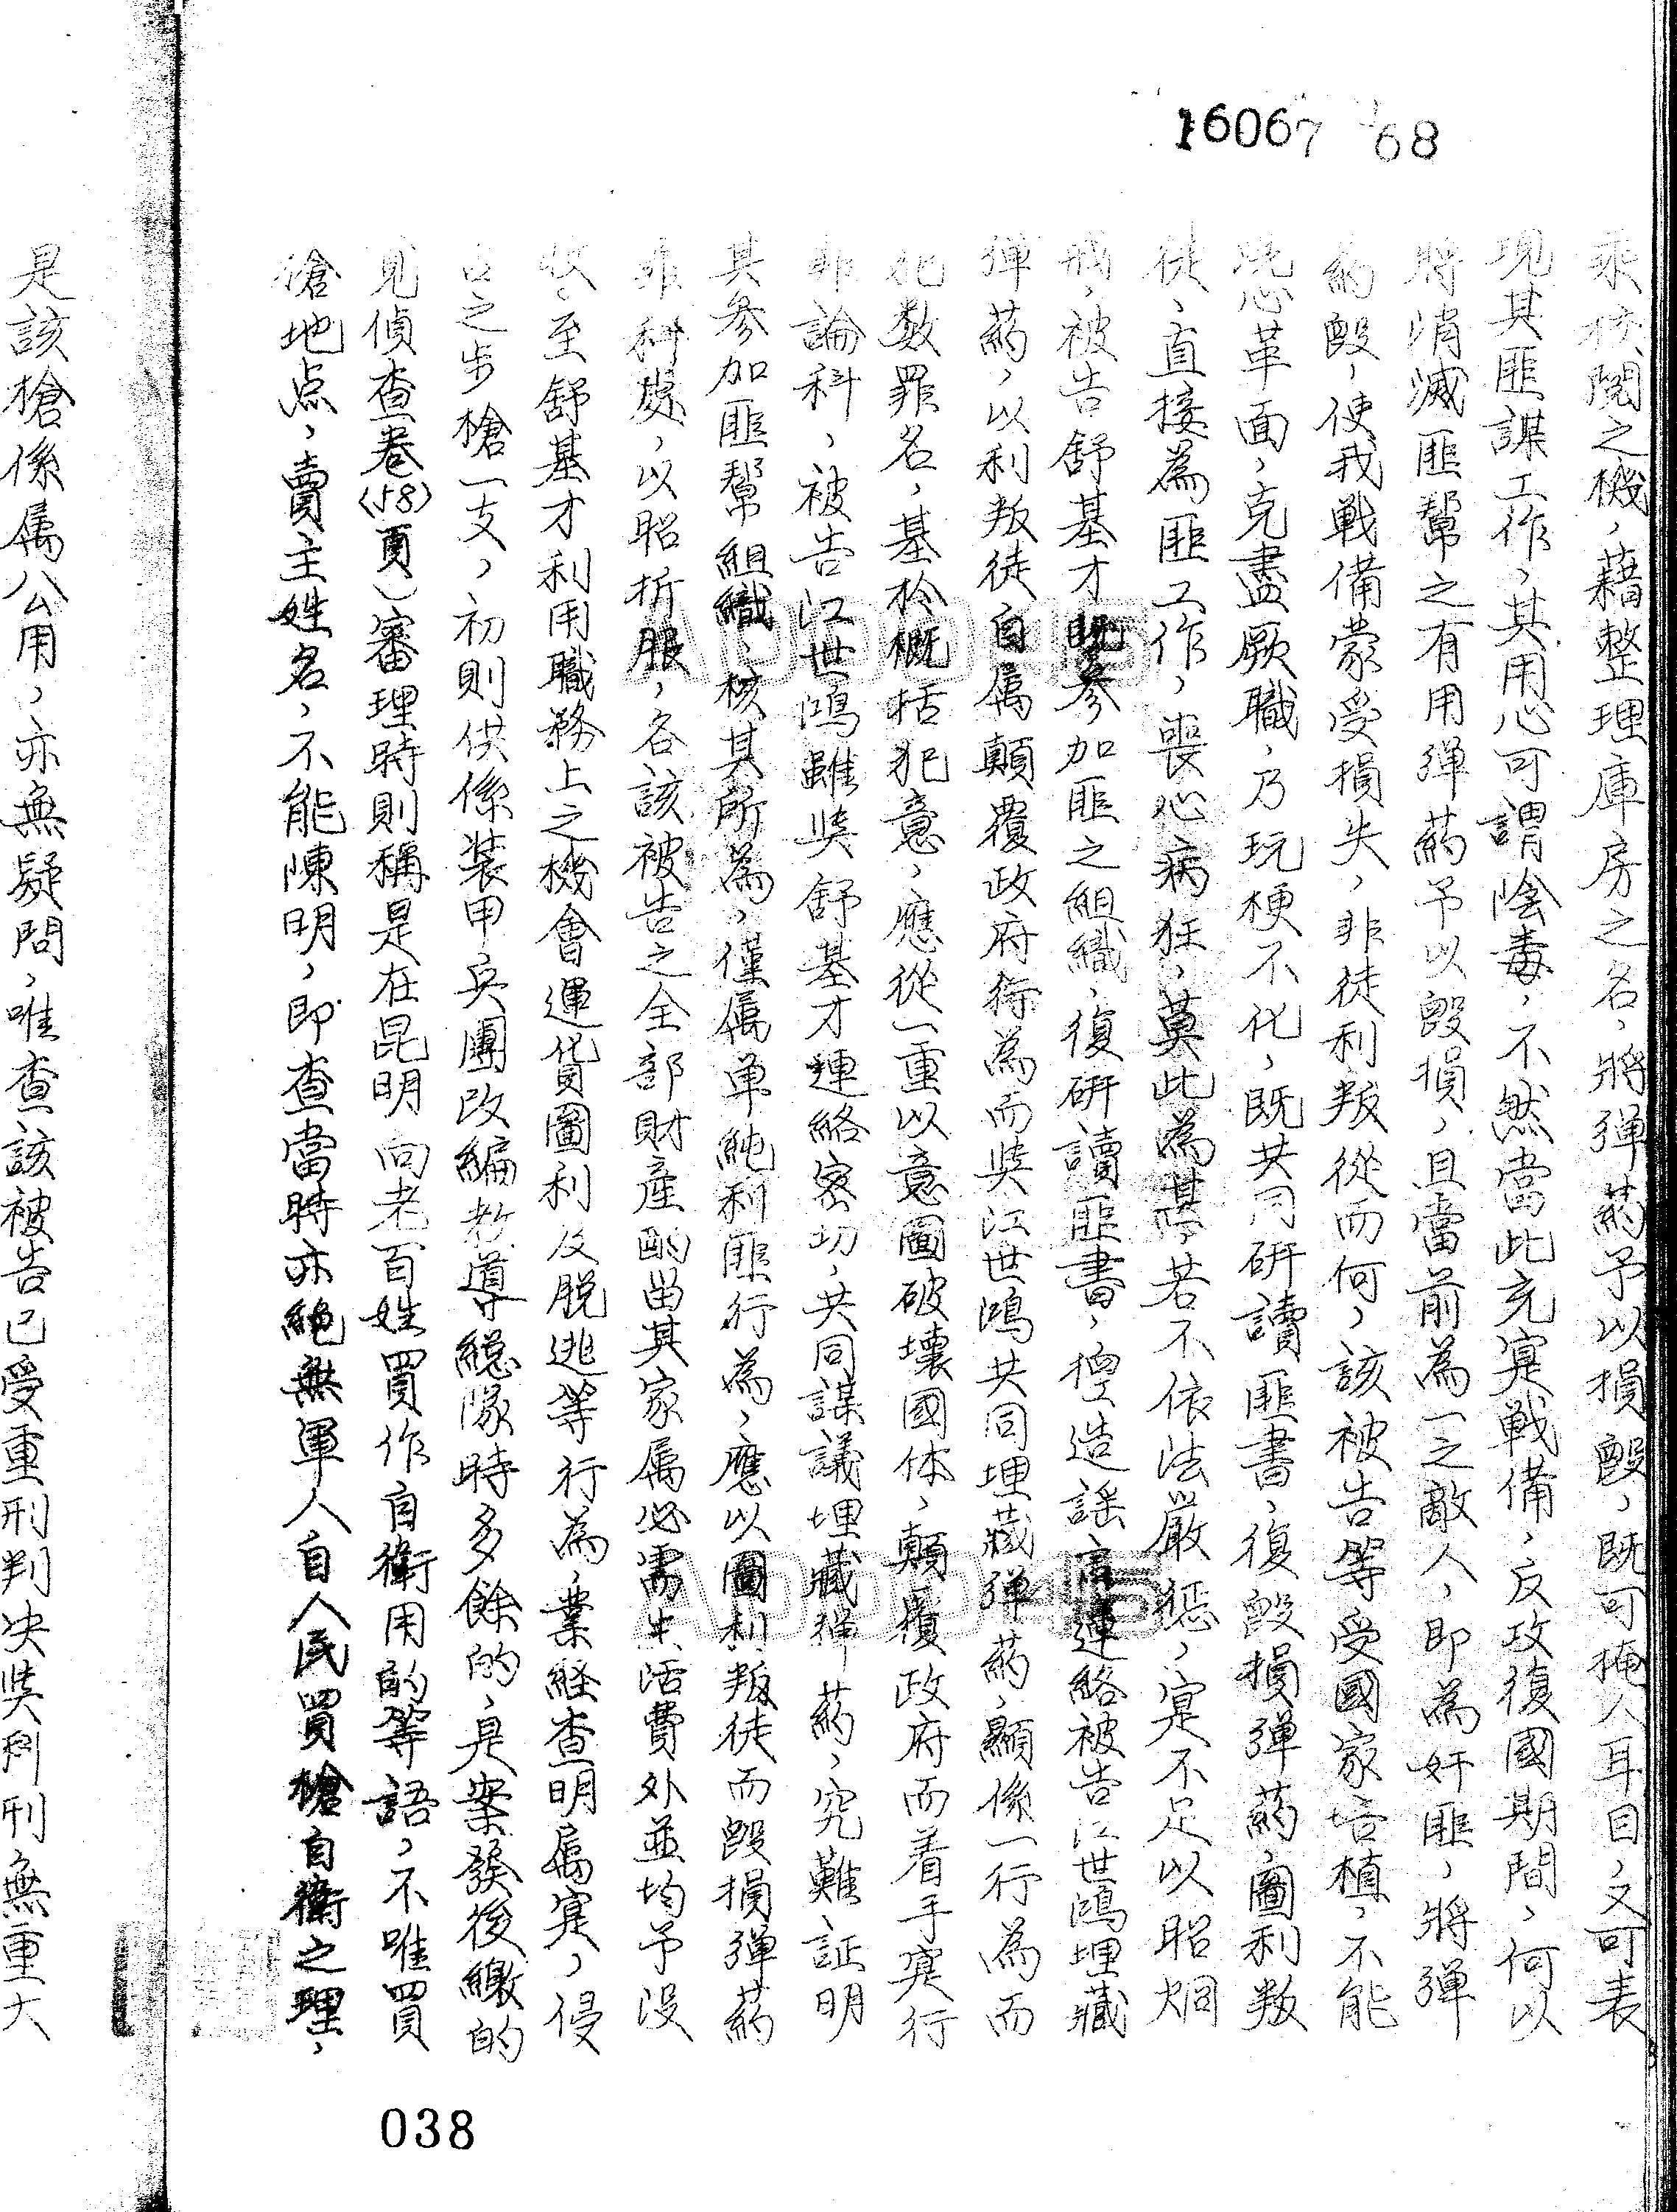 16067 68
乘核閱之機，藉整理庫房之名，將彈葯予以損毀，既可掩人耳目，又可表
現其匪謀工作，其用心可謂陰毒，不然當此充寔戰備，反攻復國期間，何以
將消滅匪幫之有用彈葯予以毀損，且當前為一之敵人，即為奸匪，將彈
葯毀，使我戰備蒙受損失，非徒利叛從而何，該被告等受國家培植，不能
洗心革面，克盡厥職，乃玩梗不化，既共同研讀匪書，復毀損彈葯，圖利叛
徒，直接為匪工作，喪心病狂，莫此為甚，若不依法嚴惩，寔不足以昭烱
戒，被告舒基才既參加匪之組織，復研讀匪書，捏造謠言連絡被告江世鴻埋藏
彈葯，以利叛徒自属顛覆政府行為而與江世鴻共同埋藏彈葯，顯係一行為而
犯数罪名，基於概括犯意，應從一重以意圖破壞國体，顛覆政府而着手寔行
罪論科，被告江世鴻雖與舒基才連絡密切，共同謀議埋藏彈葯，究難証明
其參加匪幫組織，核其所為，僅属单純利匪行為，應以圖利叛徒而毀損彈葯
罪科處，以昭折服，各該被告之全部財產酌留其家属必需生活費外並均予没
收，至舒基才利用職務上之機會運貨圖利及脫逃等行為，業経查明属寔，侵
占之步槍一支，初則供係装甲兵團改編教導総隊時多餘的，是案發後繳的
見偵查卷(58)頁）審理時則稱是在昆明向老百姓買作自衛用的等語，不唯買
槍地点，賣主姓名，不能陳明，即查當時亦絕無軍人自人民買槍自衛之理，
是該槍係属公用，亦無疑問，唯查該被告已受重刑判决與科刑無重大
ADDD45
ADDD45
038